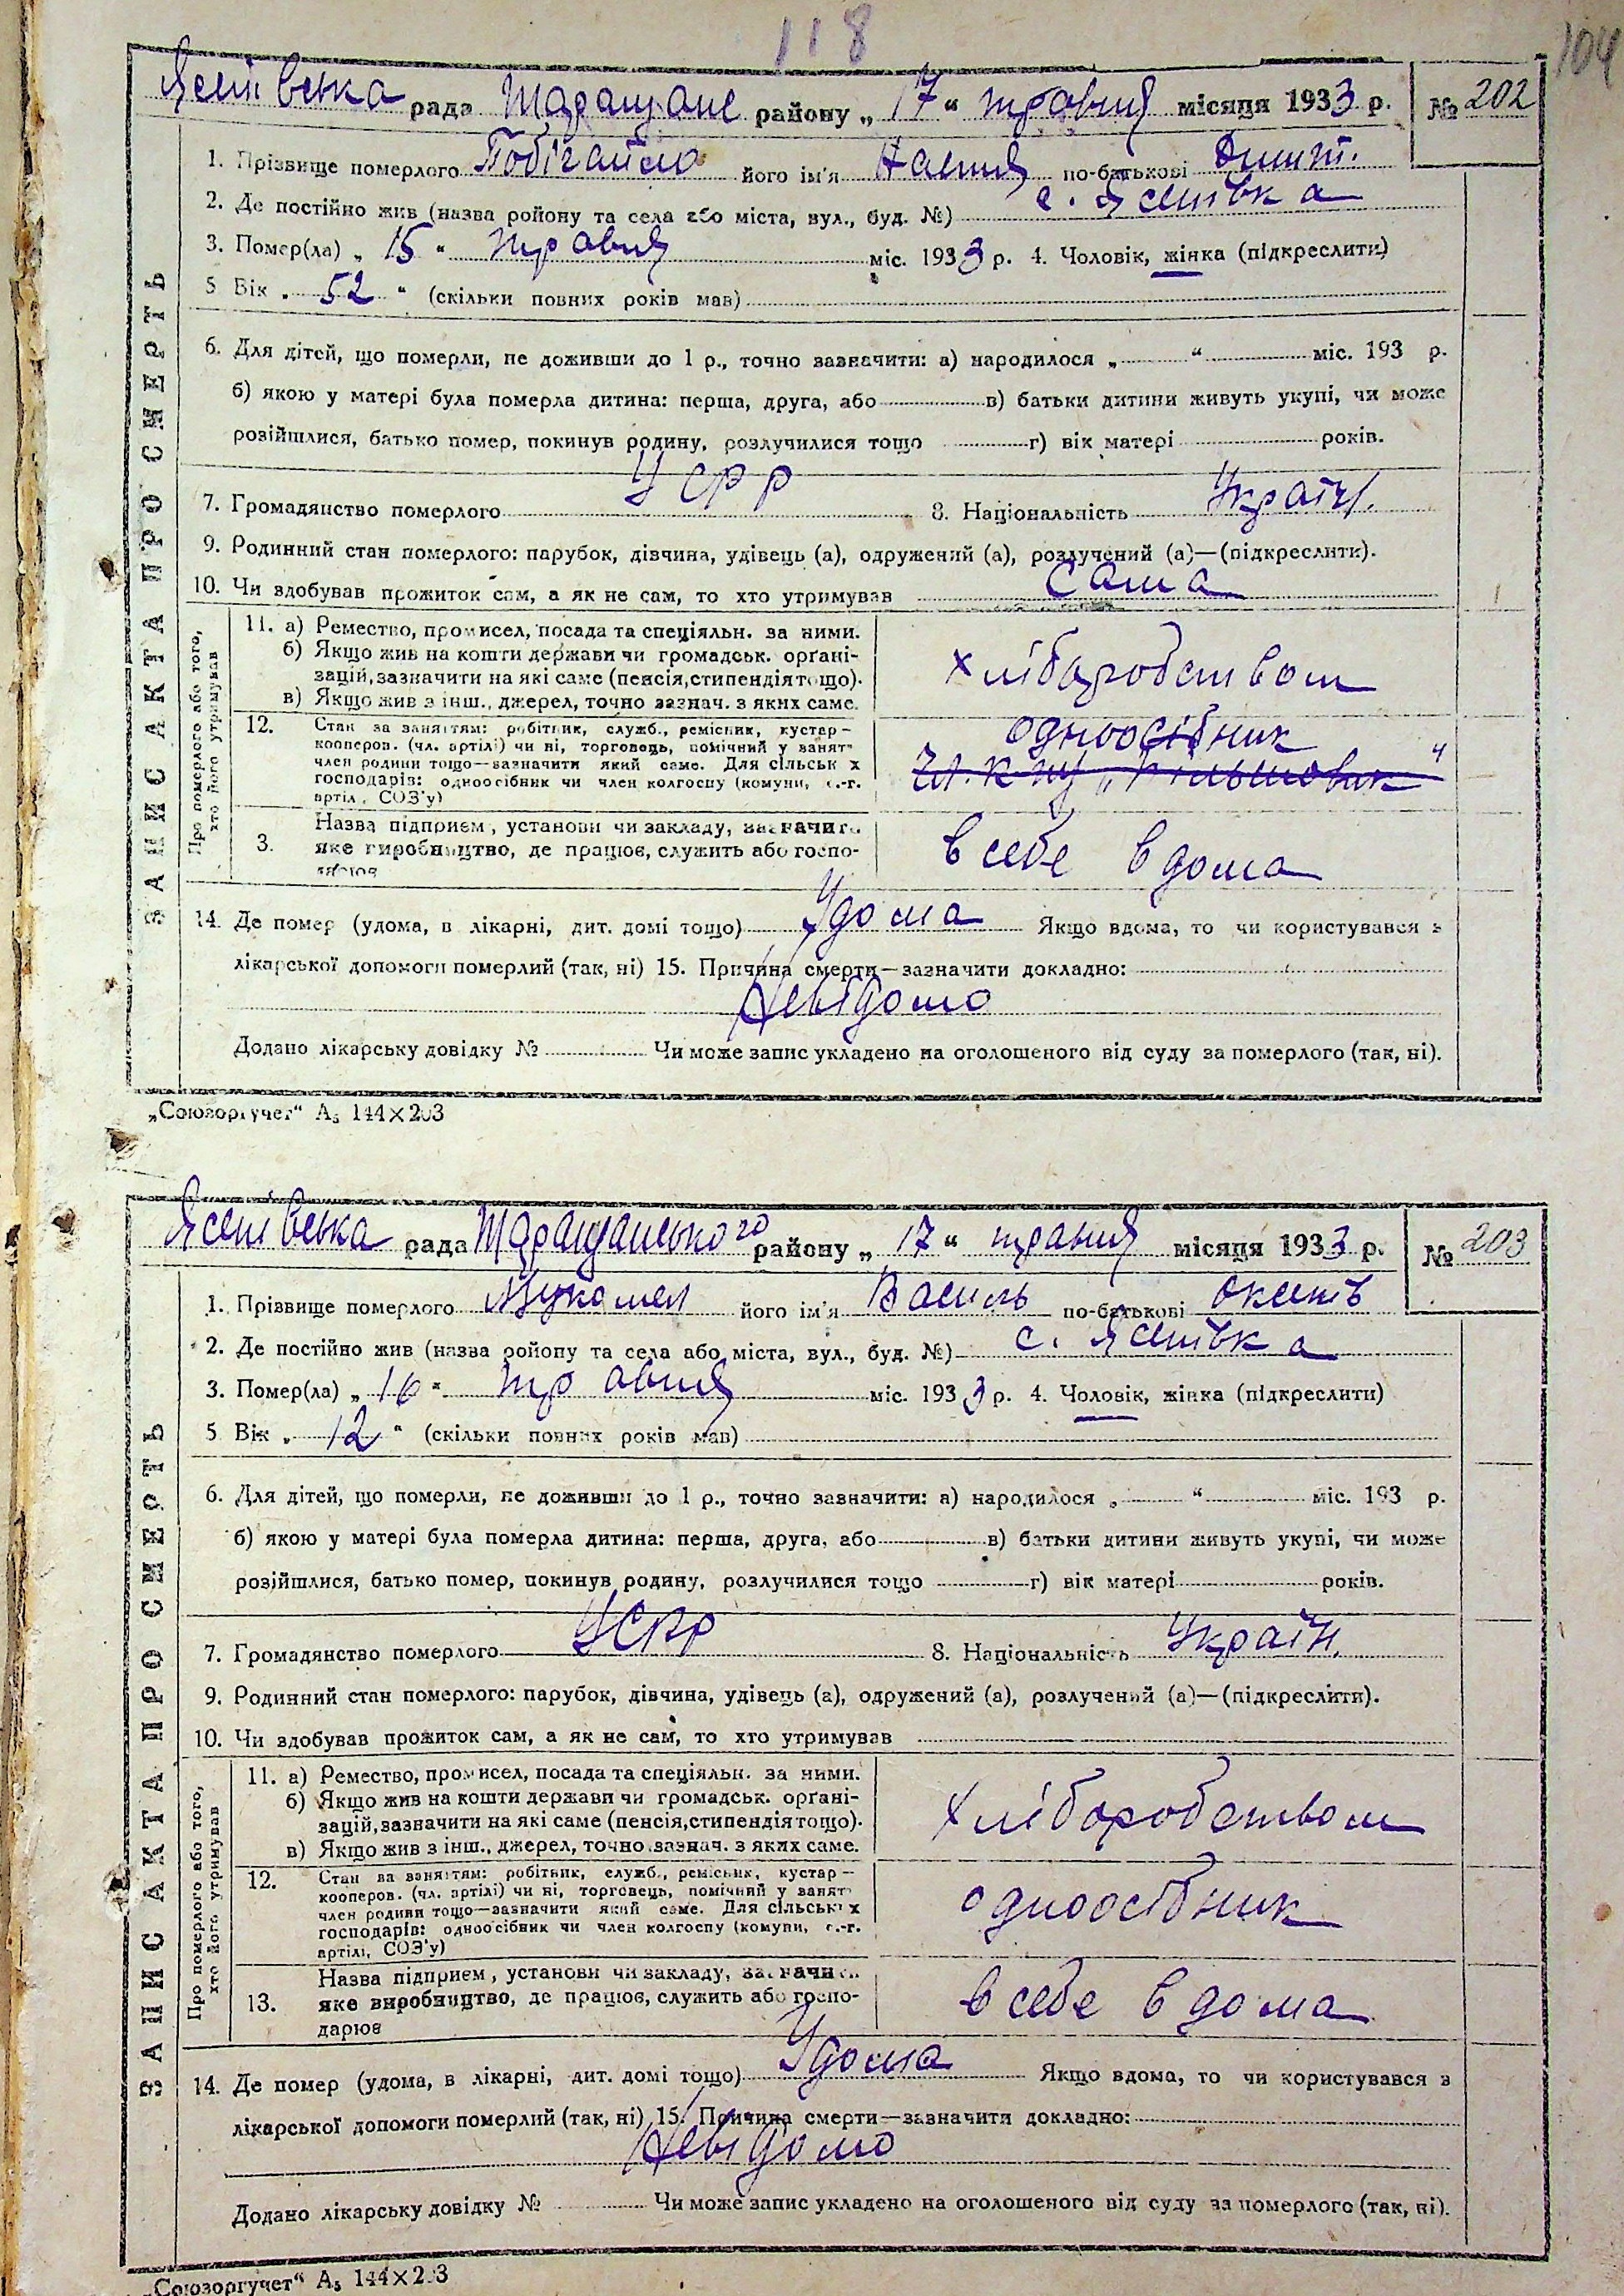 118
104
Ясенівська рада Таращане району „17“ травня місяця 1933 р. № 202
ЗАПИС АКТА ПРО СМЕРТЬ
1. Прізвище померлого Побігайло його ім'я Настя по-батькові Дмит.
2. Де постійно жив (назва ройону та села або міста, вул., буд. №) с. Ясенівка
3. Помер(ла) „15“ травня міс. 1933 р. 4. Чоловік, жінка (підкреслити)
5 Вік „52“ (скільки повних років мав)
6. Для дітей, що померли, не доживши до 1 р., точно зазначити: а) народилося „ “ міс. 193 р.
б) якою у матері була померла дитина: перша, друга, або в) батьки дитини живуть укупі, чи може
розійшлися, батько помер, покинув родину, розлучилися тощо г) вік матері років.
7. Громадянство померлого УСРР 8. Національність Україн.
9. Родинний стан померлого: парубок, дівчина, удівець (а), одружений (а), розлучений (а)—(підкреслити).
10. Чи здобував прожиток сам, а як не сам, то хто утримував сама
Про померлого або того,
хто його утримував
11. а) Ремество, промисел, посада та спеціяльн. за ними.
б) Якщо жив на кошти держави чи громадськ. орґані-
зацій, зазначити на які саме (пенсія, стипендія тощо).
в) Якщо жив з інш., джерел, точно зазнач. з яких саме.
хліборобством
12. Стан за заняттям: робітник, служб., ремісник, кустар—
кооперов. (чл. артілі) чи ні, торговець, помічний у занят
член родини тощо—зазначити який саме. Для сільськ х
господарів: одноосібник чи член колгоспу (комуни, с.-г.
артіл, СОЗ'у)
одноосібник
чл. к-пу „Більшовик“
3. Назва підприєм, установи чи закладу, зазначити
яке виробництво, де працює, служить або госпо-
дарює
в себе вдома
14. Де помер (удома, в лікарні, дит. домі тощо) Удома Якщо вдома, то чи користувався з
лікарської допомоги померлий (так, ні) 15. Причина смерти—зазначити докладно:
Невідомо
Додано лікарську довідку № Чи може запис укладено на оголошеного від суду за померлого (так, ні).
„Союзоргучет“ А5 144×203
Ясенівська рада Таращанського району „17“ травня місяця 1933 р. № 203
ЗАПИС АКТА ПРО СМЕРТЬ
1. Прізвище померлого Мукомел його ім'я Василь по-батькові Оксент
2. Де постійно жив (назва ройону та села або міста, вул., буд. №) с. Ясенівка
3. Помер(ла) „16“ травня міс. 1933 р. 4. Чоловік, жінка (підкреслити)
5 Вік „12“ (скільки повних років мав)
6. Для дітей, що померли, не доживши до 1 р., точно зазначити: а) народилося „ “ міс. 193 р.
б) якою у матері була померла дитина: перша, друга, або в) батьки дитини живуть укупі, чи може
розійшлися, батько помер, покинув родину, розлучилися тощо г) вік матері років.
7. Громадянство померлого УСРР 8. Національність Україн.
9. Родинний стан померлого: парубок, дівчина, удівець (а), одружений (а), розлучений (а)—(підкреслити).
10. Чи здобував прожиток сам, а як не сам, то хто утримував
Про померлого або того,
хто його утримував
11. а) Ремество, промисел, посада та спеціяльн. за ними.
б) Якщо жив на кошти держави чи громадськ. орґані-
зацій, зазначити на які саме (пенсія, стипендія тощо).
в) Якщо жив з інш., джерел, точно зазнач. з яких саме.
хліборобством
12. Стан за заняттям: робітник, служб., ремісник, кустар—
кооперов. (чл. артілі) чи ні, торговець, помічний у занят
член родини тощо—зазначити який саме. Для сільськ х
господарів: одноосібник чи член колгоспу (комуни, с.-г.
артілі, СОЗ'у)
одноосібник
13. Назва підприєм, установи чи закладу, зазначити
яке виробництво, де працює, служить або госпо-
дарює
в себе вдома
14. Де помер (удома, в лікарні, дит. домі тощо) Удома Якщо вдома, то чи користувався з
лікарської допомоги померлий (так, ні) 15. Причина смерти—зазначити докладно:
Невідомо
Додано лікарську довідку № Чи може запис укладено на оголошеного від суду за померлого (так, ні).
„Союзоргучет“ А5 144×203